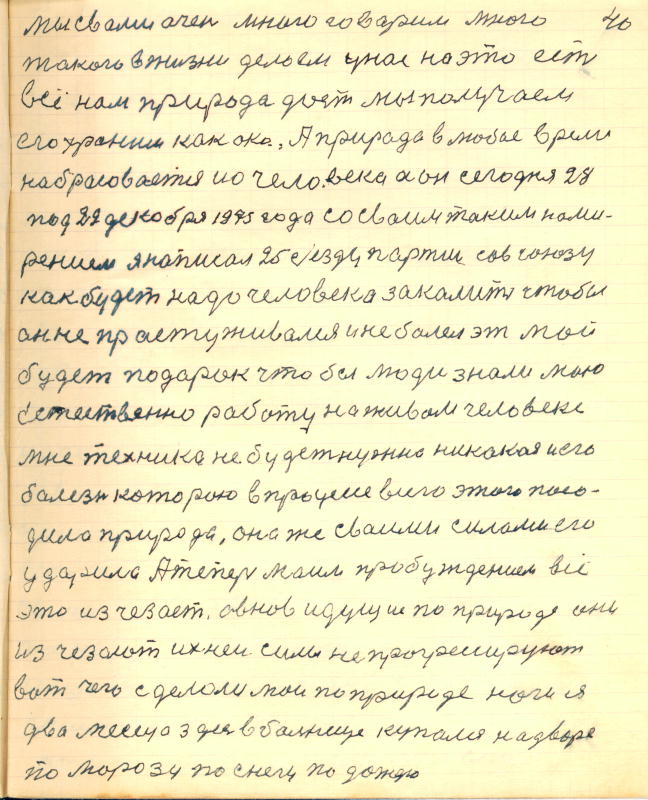 мы свами очен много говарим много 40
такого в жизни делоем унас на это ест
всё нам природа дает мы получаем
его храним как око. А природа в любое время
набрасовается и о человека а он сегодня 28
под 29 декобря 1975 года со сваим таким нами-
рением я написал 25 съезду партии сов союзу
как будет надо человека закалит чтобы
он не прастуживался и не болел эт мой
будет подарок что бы люди знали маю
естественно работу на живом человеке
мне техника не будет нужна никакая и его
болезн которою в процесе всего этого поса-
дила природа, она же сваими силами его
ударила А тепер маим пробуждением всё
это изчезает, овнов идущие по природе они
изчезают ихнеи силы не прогрессируют
вот чего сделоли мои по природе ноги я
два месеца здес в болнице купался на дворе
по морозу по снегу по дождю